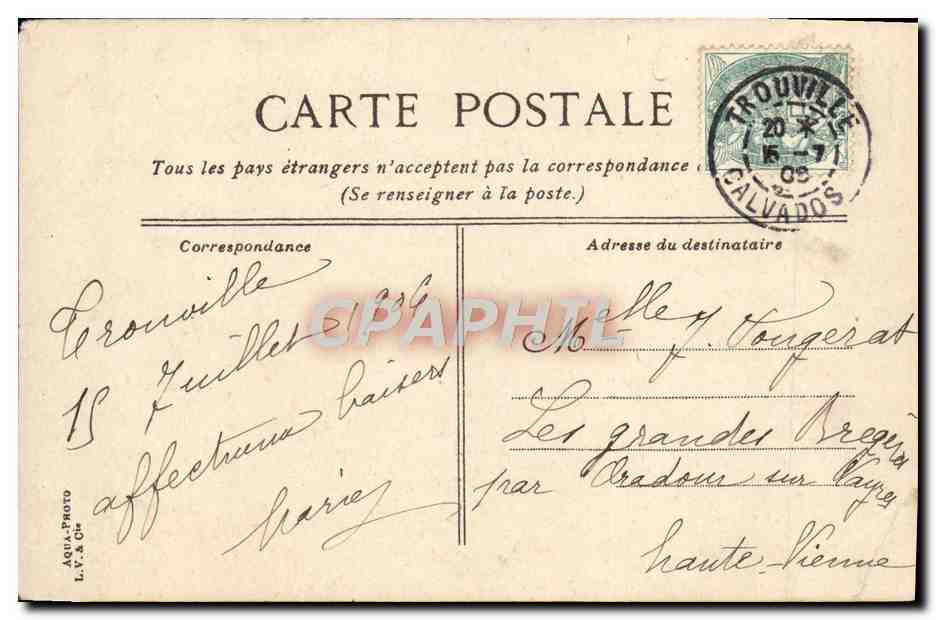 CARTE POSTALE
Tous les pays étrangers n'acceptent pas la correspondance
(Se renseigner à la poste.)
TROUVILLE
20 *
15 - 7
CALVADOS
Correspondance
Trouville
15 Juillet
affectueux baisers
AQUA-PHOTO
L.V. & Cie
CPAPHIL
Adresse du destinataire
Melle J. Vougerat
Les grandes
par Oradour sur Vayres
haute-Vienne